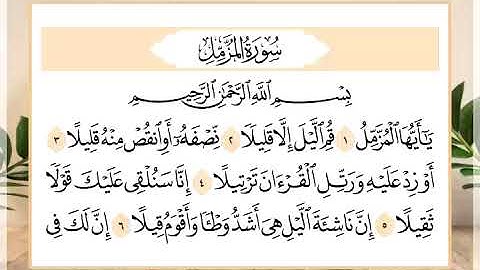 سُورَةُ المُزَّمِّل
بِسْمِ اللَّهِ الرَّحْمَٰنِ الرَّحِيمِ
يَٰٓأَيُّهَا ٱلْمُزَّمِّلُ ١ قُمِ ٱلَّيْلَ إِلَّا قَلِيلًا ٢ نِّصْفَهُۥٓ أَوِ ٱنقُصْ مِنْهُ قَلِيلًا ٣
أَوْ زِدْ عَلَيْهِ وَرَتِّلِ ٱلْقُرْءَانَ تَرْتِيلًا ٤ إِنَّا سَنُلْقِى عَلَيْكَ قَوْلًا
ثَقِيلًا ٥ إِنَّ نَاشِئَةَ ٱلَّيْلِ هِىَ أَشَدُّ وَطْـًٔا وَأَقْوَمُ قِيلًا ٦ إِنَّ لَكَ فِى